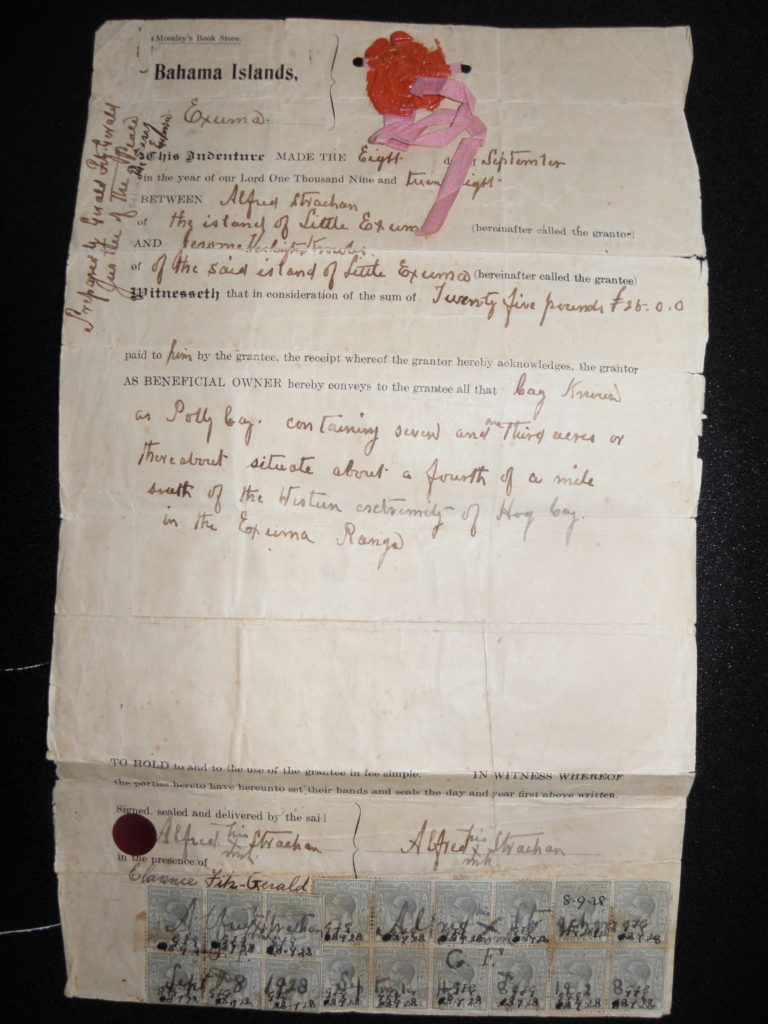 Moseley's Book Store.
Bahama Islands,
Exuma.
This Indenture MADE THE Eight day of September
in the year of our Lord One Thousand Nine and twenty eight
BETWEEN Alfred Strachan
of the island of Little Exuma (hereinafter called the grantor)
AND Jerome Knowles
of of the said island of Little Exuma (hereinafter called the grantee)
Witnesseth that in consideration of the sum of Twenty five pounds £25.0.0
paid to him by the grantee, the receipt whereof the grantor hereby acknowledges, the grantor
AS BENEFICIAL OWNER hereby conveys to the grantee all that Cay Known
as Polly Cay. containing seven and one Third acres or
thereabout situate about a fourth of a mile
south of the Western extremity of Hog Cay.
in the Exuma Range
Prepared by Gerald Fitz-Gerald
Justice of the Peace
Exuma
TO HOLD to and to the use of the grantee in fee simple. IN WITNESS WHEREOF
the parties hereto have hereunto set their hands and seals the day and year first above written.
Signed, sealed and delivered by the said
Alfred his x mk Strachan
Alfred his x mk Strachan
in the presence of
Clarence Fitz-Gerald
8-9-28
Alfred Strachan Alfred x Strachan
C. F.
Sept 8 1928